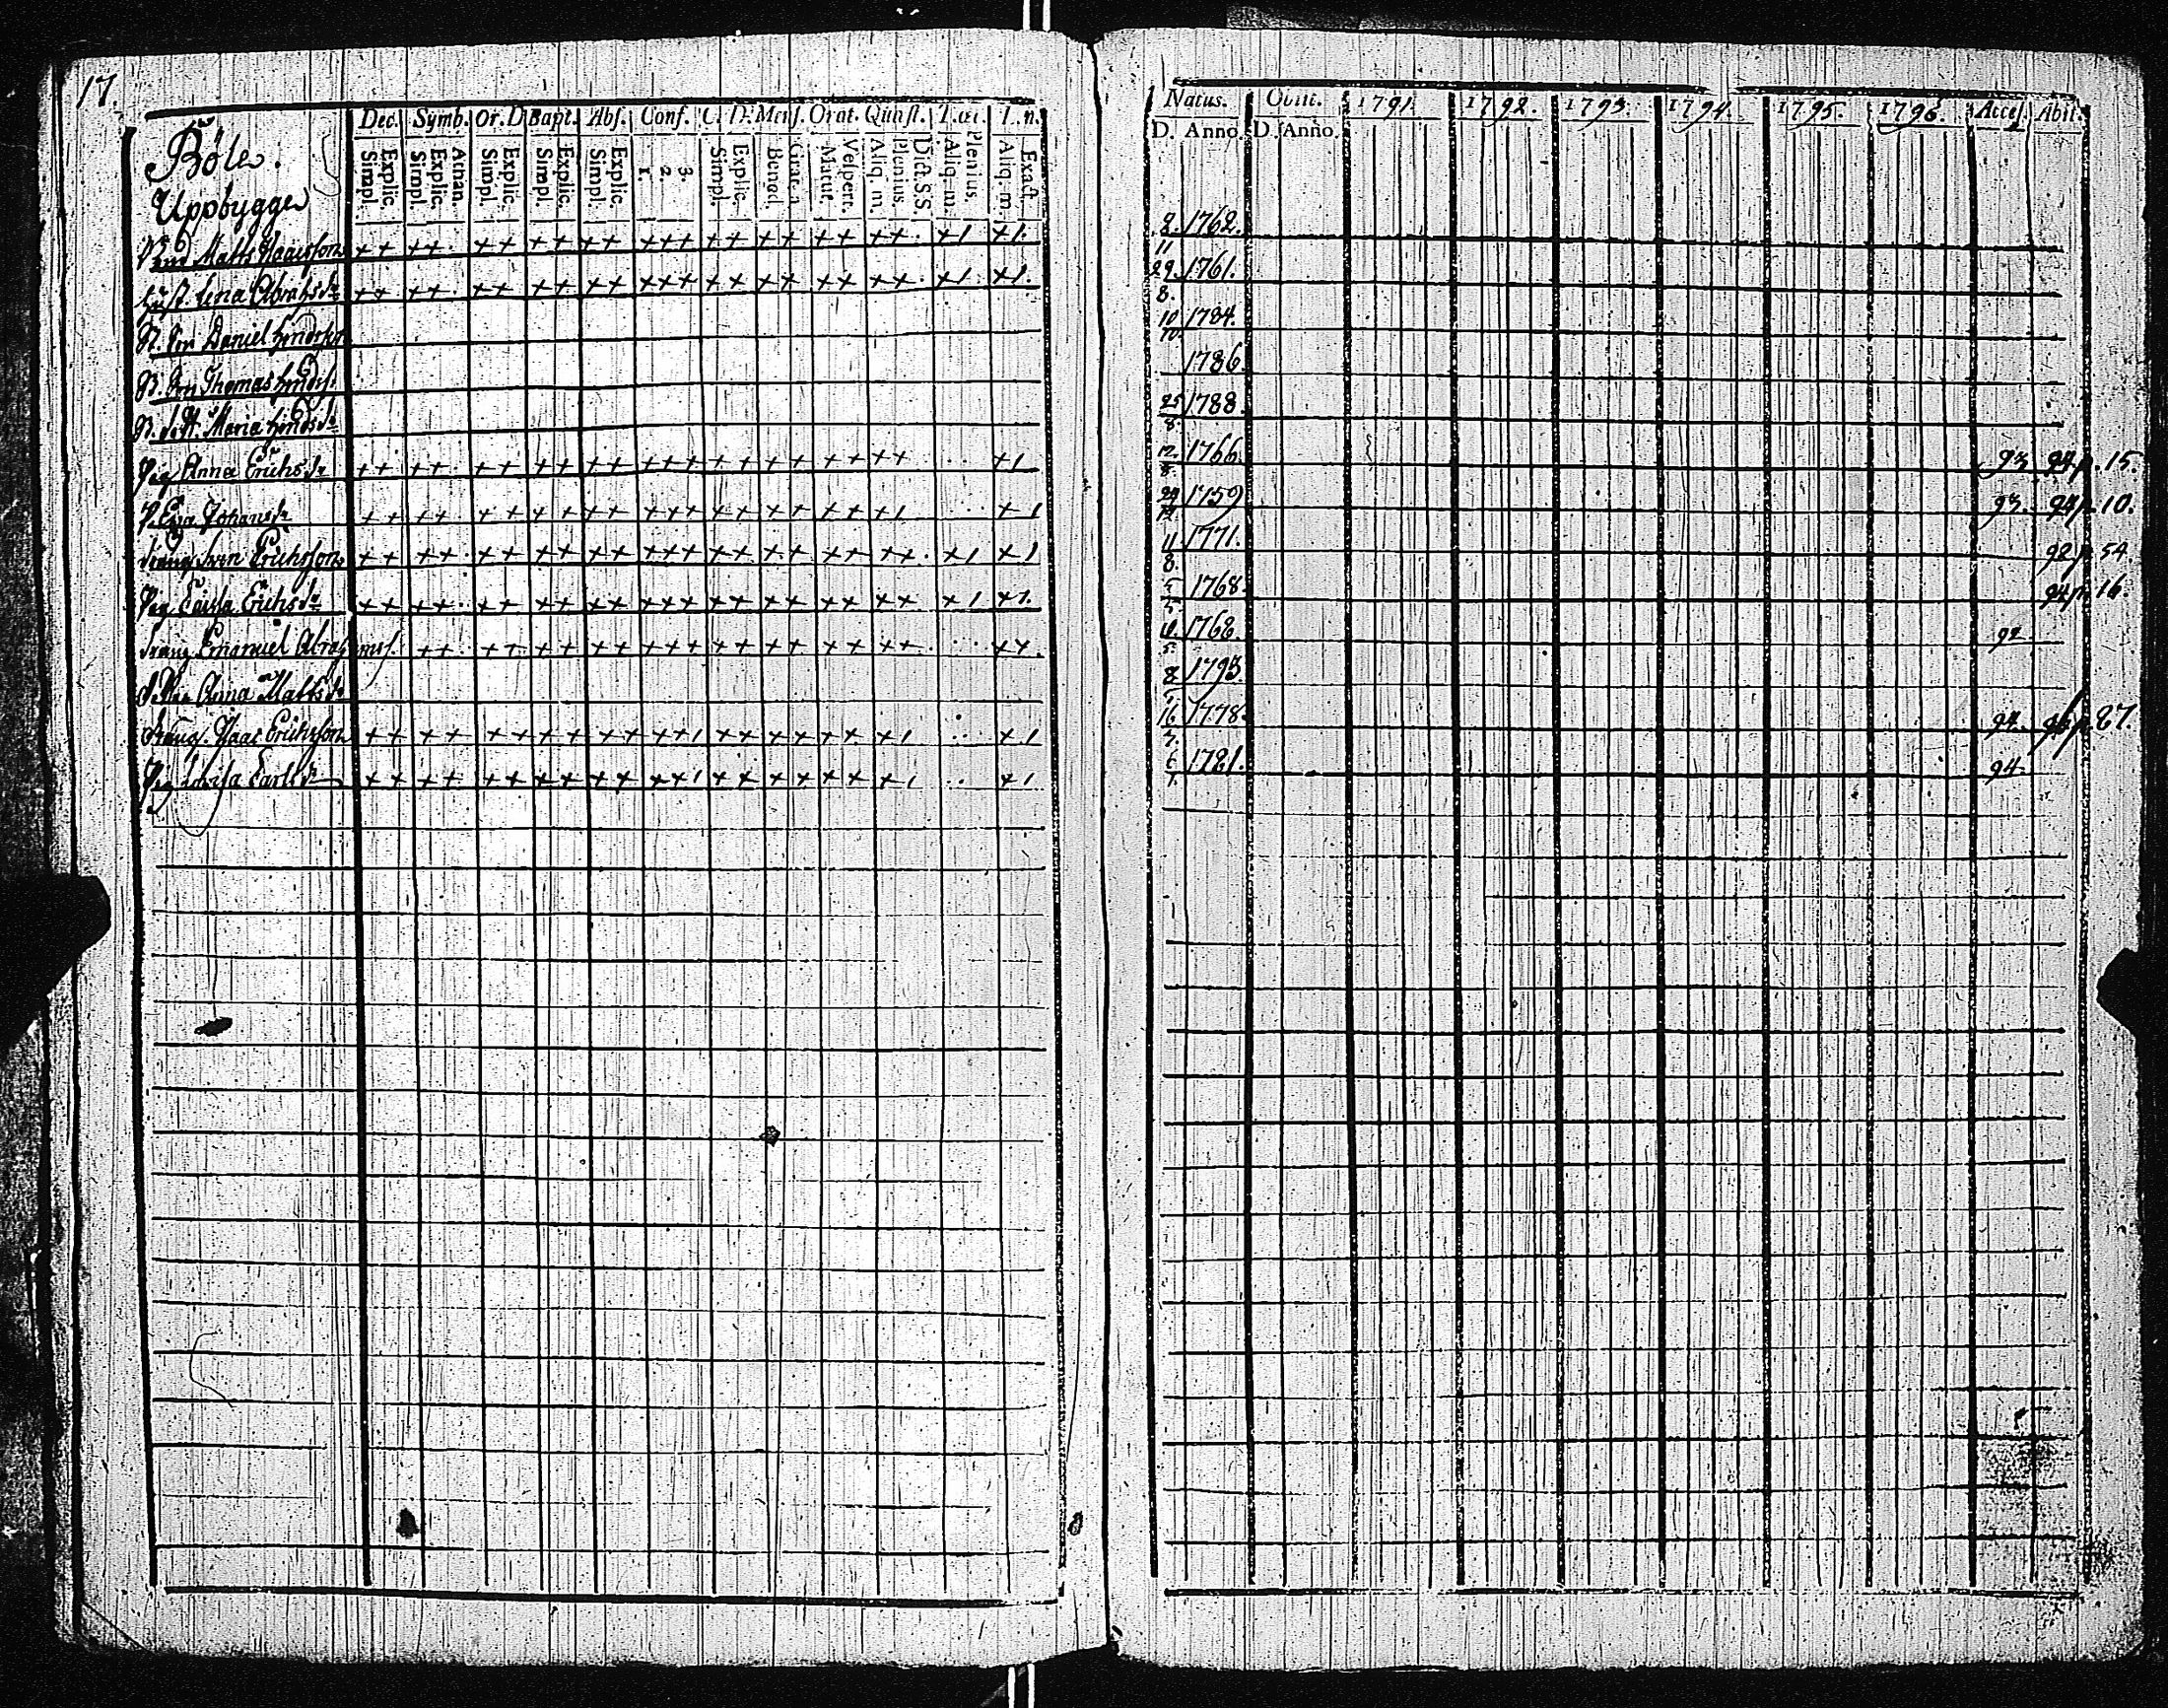 17.
Dec. Symb. Or. D. Bapt. Abs. Conf. C. D. Mens. Orat. Quæst. T. œc. L. n.
Natus. Obiit. 1791. 1792. 1793. 1794. 1795. 1796. Access. Abit.
D. Anno. D. Anno.
Simpl. Explic. Simpl. Explic. Athan. Simpl. Explic. Simpl. Explic. Simpl. Explic. 1. 2. 3. Simpl. Explic. Bened. Grat. a. Matut. Vespert. Aliq. m. Plenius. Dict. S. S. Aliq. m. Plenius. Aliq. m. Exact.
Böle.
Uppbygge
Matts Isaacsson ++ ++. ++ ++ ++ +++ ++ ++ ++ ++. +1 +1. 2. 11 1762.
Hust. Lena Abrahsdr ++ ++. ++ ++ ++ +++ ++ ++ ++ ++. +1 +1. 29. 8. 1761.
Daniel 10 10. 1784.
Thomas 1786.
Maria 25 8. 1788.
Pig Anna Erichsdr ++ ++. ++ ++ ++ +++ ++ ++ ++ ++ .. +1 12. 1766. 93 94 p. 15.
P. Johansdr ++ ++. ++ ++ ++ +++ ++ ++ ++ +1 ... +1 29 12. 1759 93. 94 p. 10.
Dräng Sven Erichsson ++ ++. ++ ++ ++ +++ ++ ++ ++ ++. +1 +1 11 8. 1771. 92 p. 54.
Pig Caisa Erichsdr ++ ++. ++ ++ ++ +++ ++ ++ ++ ++ +1 +1. 5 5 1768. 94 p. 16.
Dräng Emanuel Abrahamss. ++. ++ ++ ++ +++ ++ ++ ++ ++. ... ++. 5. 1768. 92
Anna Mattsdr 8. 5 1793.
Dräng. Isaac Erichsson ++ ++ ++ ++ ++ ++1 ++ ++ ++ +1 .. +1 16 7. 1778. 94. p. 27.
Pig Lovisa Carlsdr ++ ++ ++ ++ ++ ++1 ++ ++ ++ +1 .. +1 6 1781. 94.